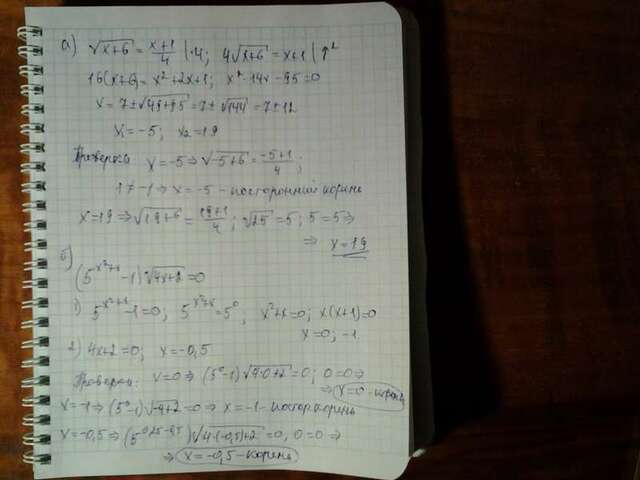 а) √(x+6) = (x+1)/4 |·4; 4√(x+6) = x+1 |↑²
16(x+6) = x²+2x+1; x²-14x-95=0
x = 7±√(49+95) = 7±√144 = 7±12
x₁=-5; x₂=19
Проверка x=-5 ⇒ √(-5+6) = (-5+1)/4;
1≠-1 ⇒ x = -5 - посторонний корень
x=19 ⇒ √(19+6) = (19+1)/4; √25 = 5; 5=5 ⇒
⇒ x=19
б)
(5^(x²+x) -1)√(4x+2) = 0
1) 5^(x²+x) -1=0; 5^(x²+x) = 5⁰, x²+x=0; x(x+1)=0
x=0; -1
2) 4x+2=0; x=-0,5
Проверка: x=0 ⇒ (5⁰-1)√(4·0+2) = 0; 0=0 ⇒
⇒ x=0 - корень
x=-1 ⇒ (5⁰-1)√(-4+2) = 0 ⇒ x=-1 - постор корень
x=-0,5 ⇒ (5^(0,25-0,5))√(4·(-0,5)+2) = 0, 0=0 ⇒
⇒ x=-0,5 - корень